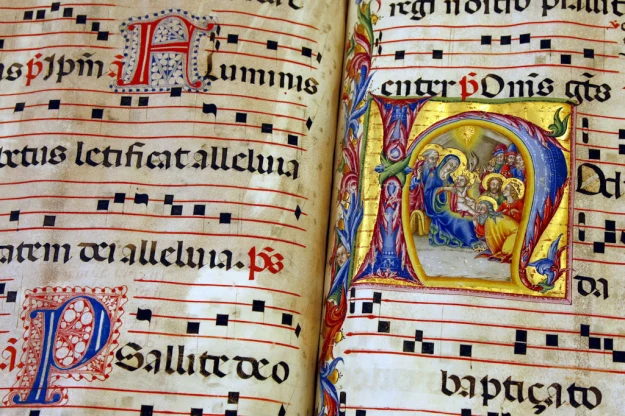 us p̄s Ip̄m a Aluminis
ectus letificat alleluia
tatem dei alleluia. p̄s
a. PSallite deo
regi nostro psallite
enter p̄s Om̄s gēts
H
da
baptiçato